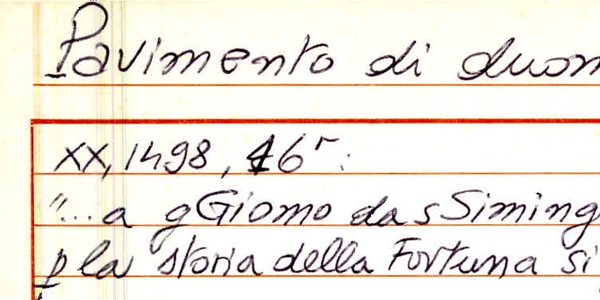 Pavimento di duom
XX, 1498, 46ʳ:
"...a gGiomo da sSiming
p la storia della Fortuna si